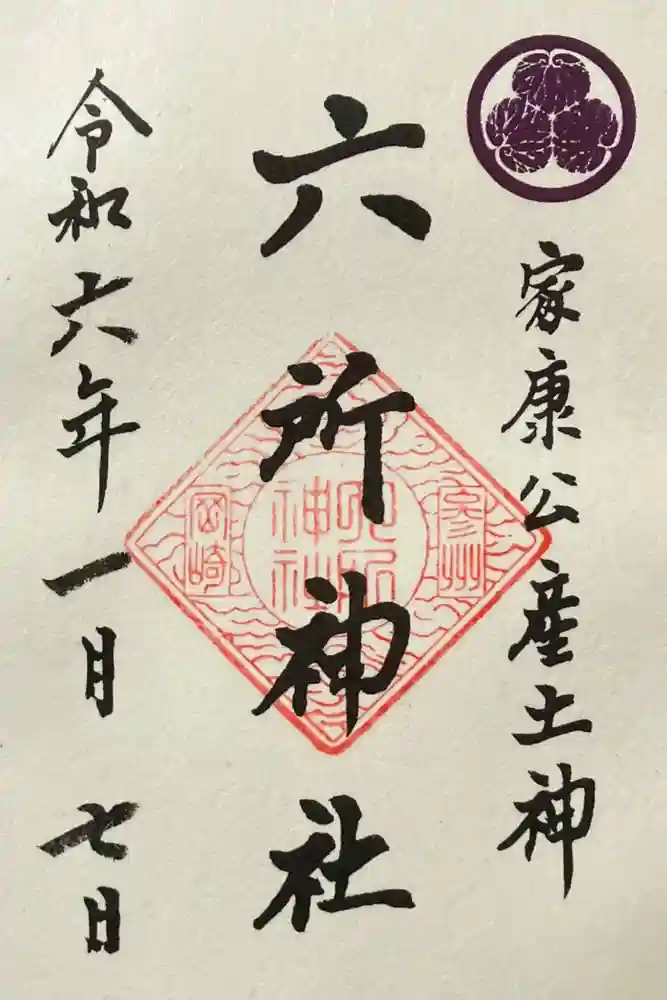 家康公産土神
六所神社
参州
六所
神社
岡崎
令和六年一月七日